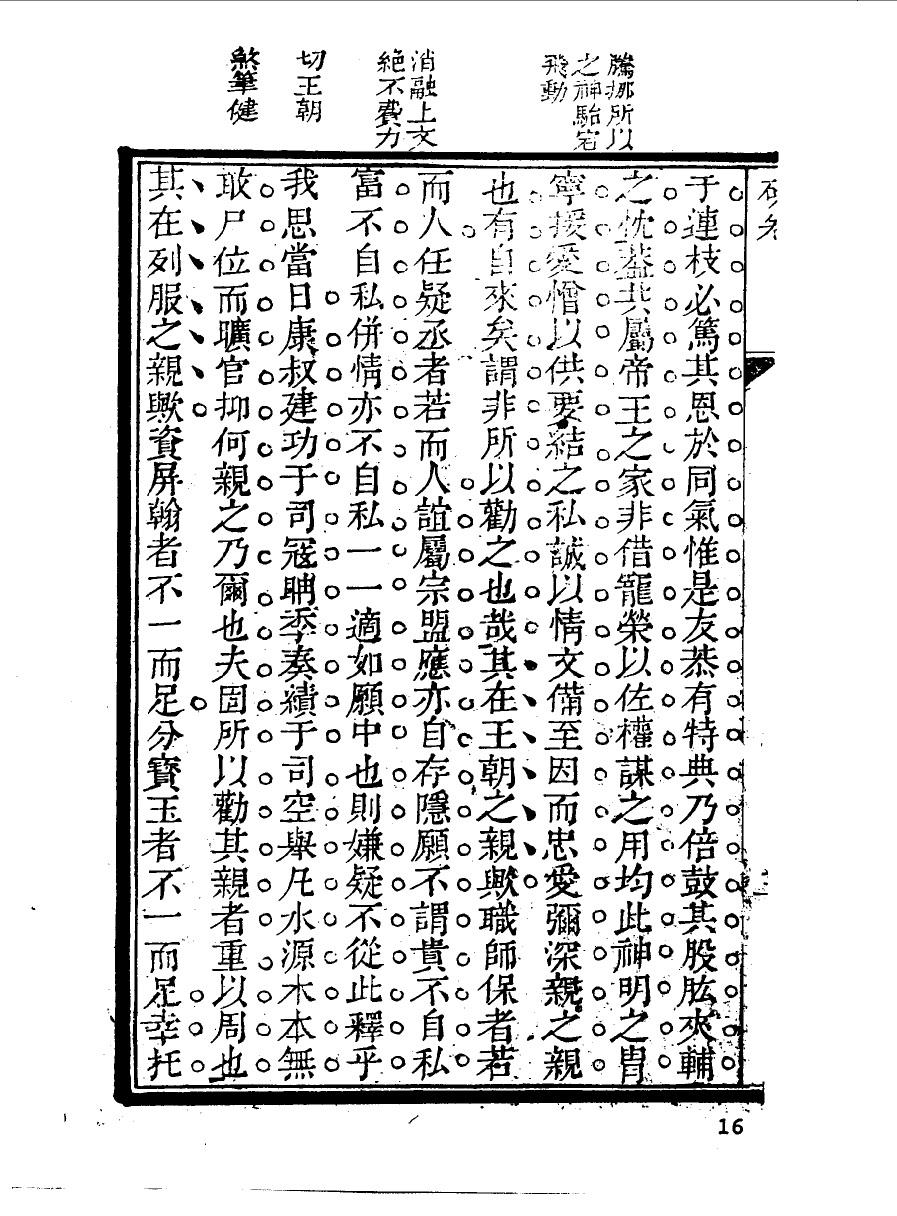 騰挪所以
之神駘宕
飛動
消融上文
絕不費力
切王朝
煞筆健
于連枝必篤其恩於同氣惟是友恭有特典乃倍鼓其股肱夾輔
之忱蓋其屬帝王之家非借寵榮以佐權謀之用均此神明之胄
寧援愛憎以供要結之私誠以情文備至因而忠愛彌深親之親
也有自來矣謂非所以勸之也哉其在王朝之親歟職師保者若
而人任疑丞者若而人誼屬宗盟應亦自存隱願不謂貴不自私
富不自私併情亦不自私一一適如願中也則嫌疑不從此釋乎
我思當日康叔建功于司寇聃季奏績于司空舉凡水源木本無
敢尸位而曠官抑何親之乃爾也夫固所以勸其親者重以周也
其在列服之親歟資屏翰者不一而足分寶玉者不一而足幸托
16